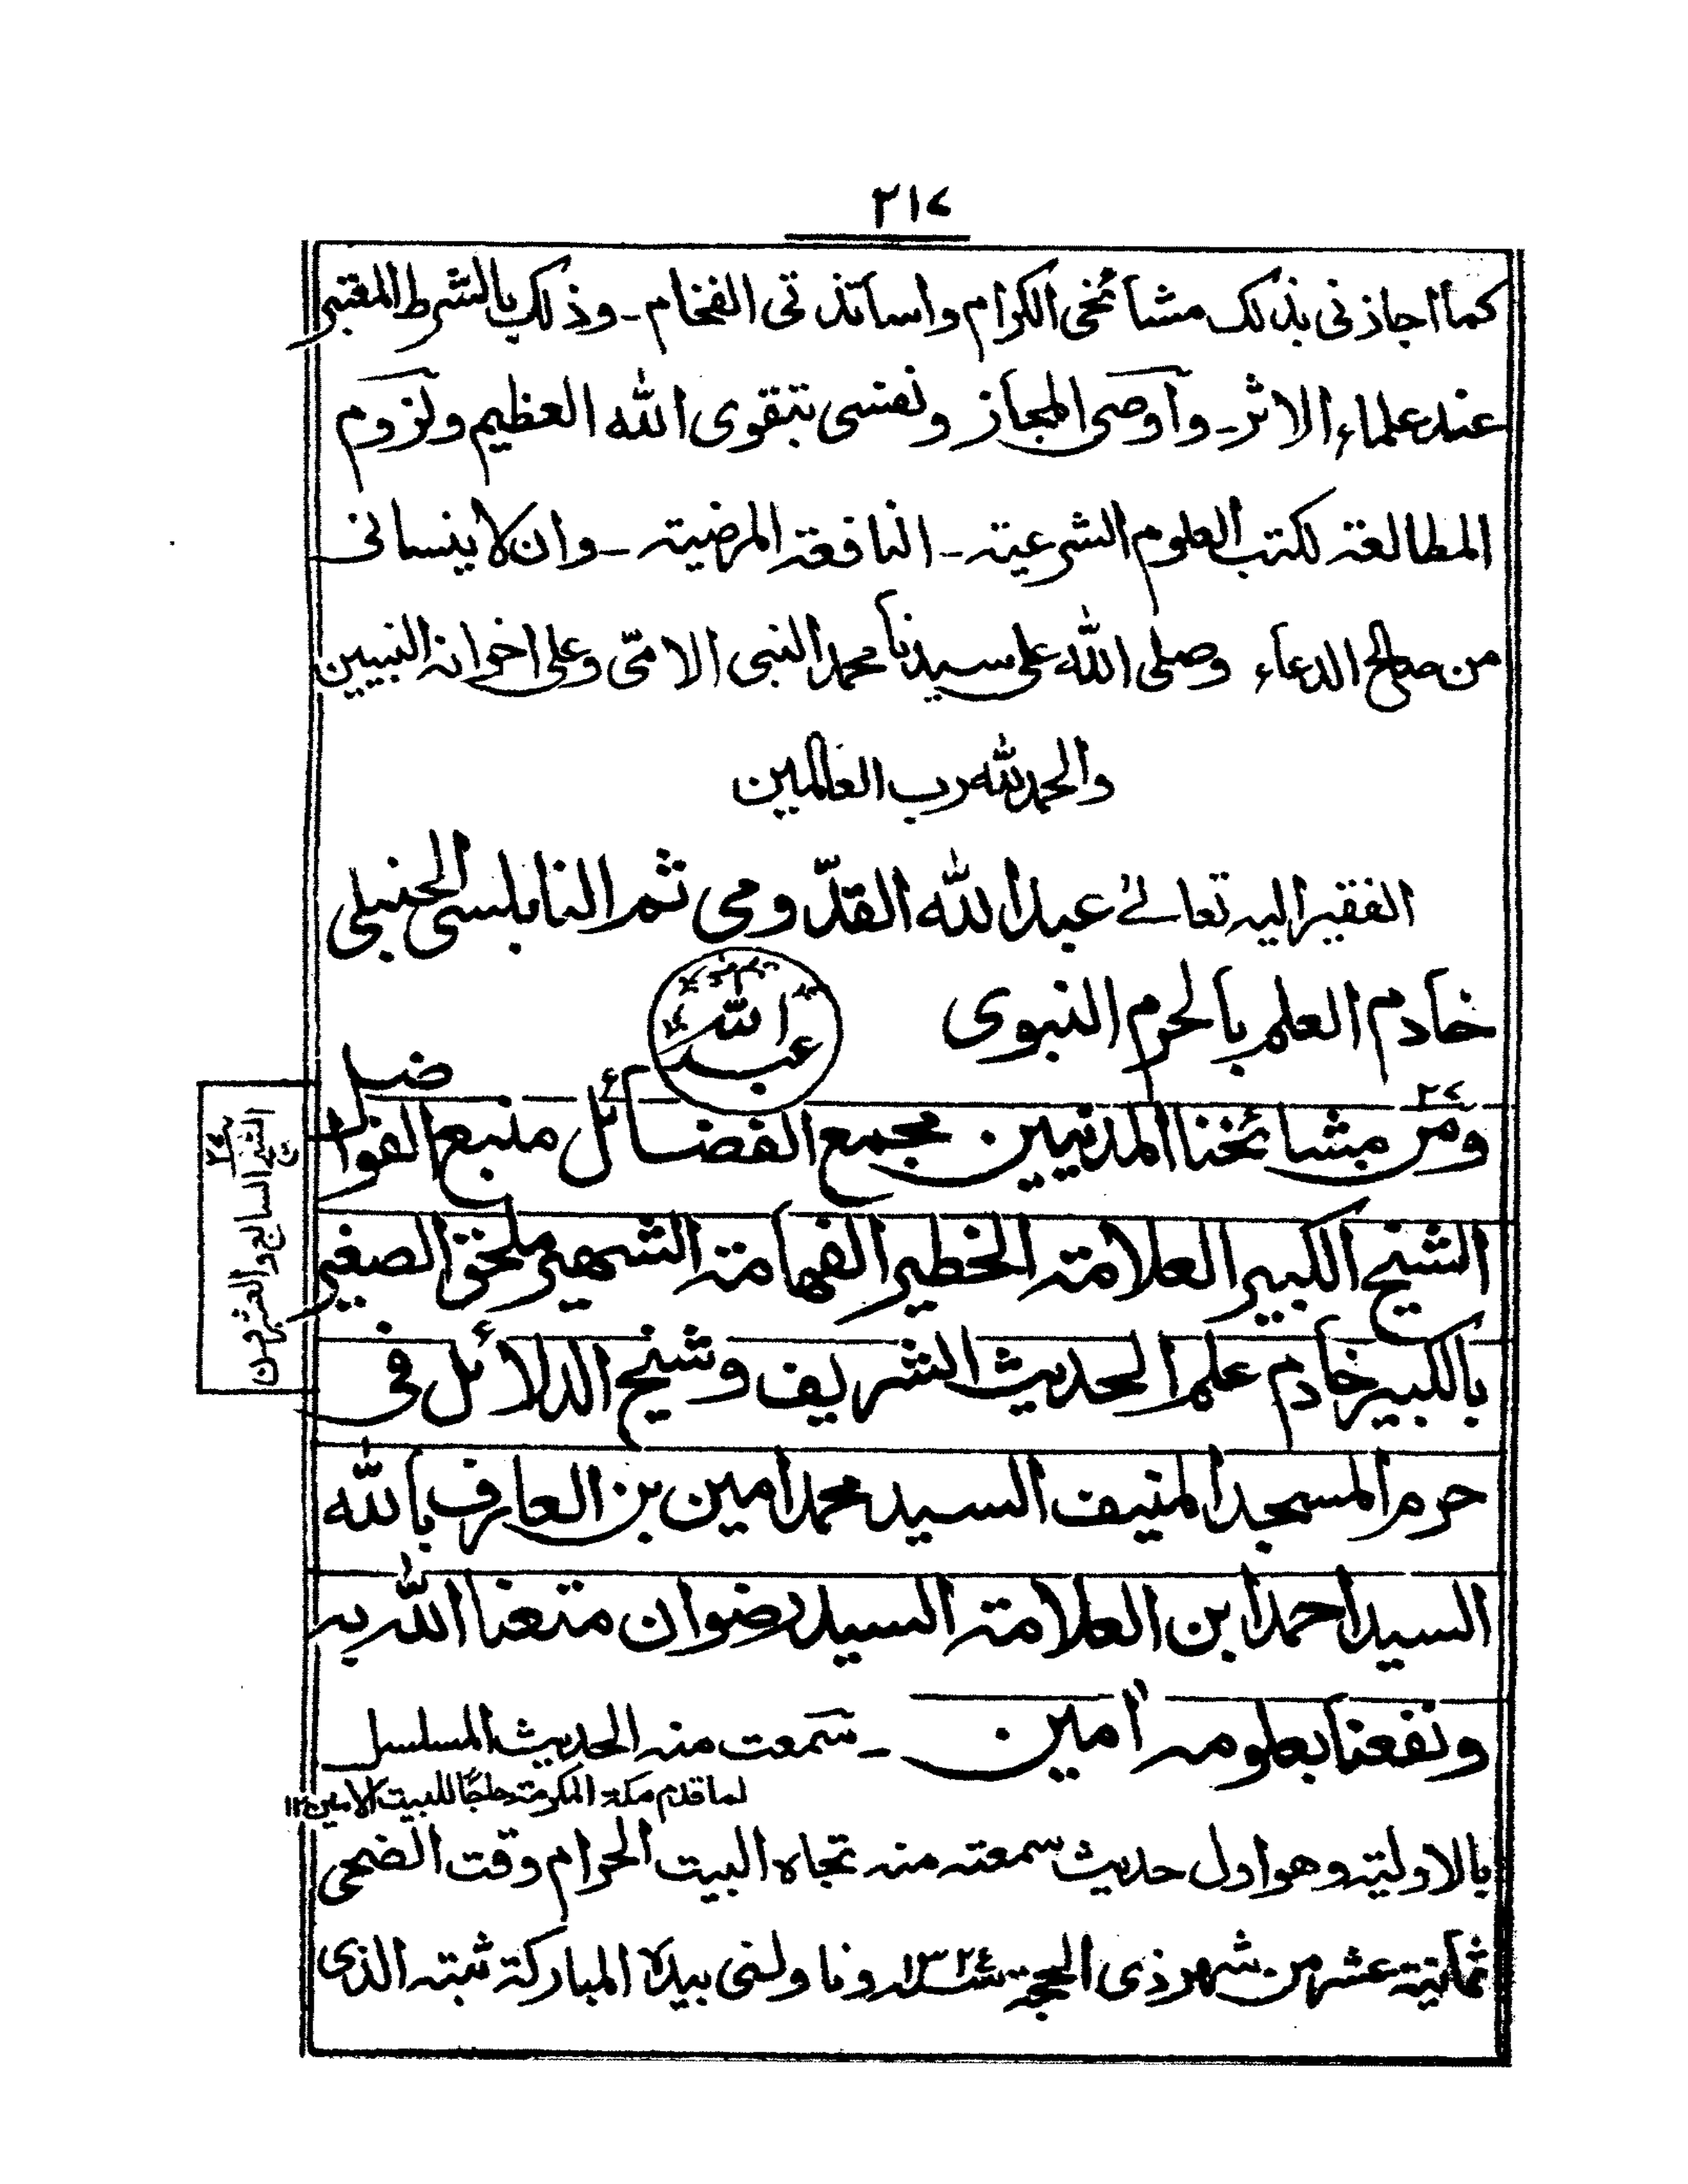 ٢١٧
كما اجازنى بذلك مشائخى الكرام واساتذتى الفخام - وذلك بالشرط المعتبر
عند علماء الاثر - وأوصى المجاز ونفسى بتقوى الله العظيم ولزوم
المطالعة لكتب العلوم الشرعية - النافعة المرضية - وان لا ينسانى
من صالح الدعاء وصلى الله على سيدنا محمد النبى الامّى وعلى اخوانه النبيين
والحمد لله رب العالمين
الفقير اليه تعالىٰ عبد الله القدّومى ثم النابلسى الحنبلى
خادم العلم بالحرم النبوى
عبد الله
٢٧
ومن مشائخنا المدنيين مجمع الفضائل منبع الفواضل
الشيخ السابع والعشرون
٢٧
الشيخ الكبير العلامة الخطير الفهامة الشهير ملحق الصغير
بالكبير خادم علم الحديث الشريف وشيخ الدلائل فى
حرم المسجد المنيف السيد محمد امين بن العارف بالله
السيد احمد ابن العلامة السيد رضوان متعنا الله به
ونفعنا بعلومه اٰمين - سمعت منه الحديث المسلسل
لما قدم مكة المكرمة حاجًا للبيت الامين ١٢
بالاولية وهو اول حديث سمعته منه تجاه البيت الحرام وقت الضحى
ثمانية عشر من شهر ذى الحجة سنة ١٣٢٤ وناولنى بيده المباركة ثبته الذى